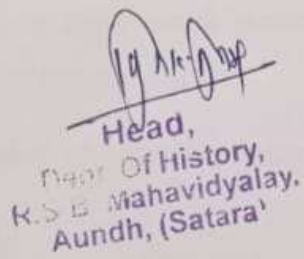 Head,
Dept Of History,
R.S.B. Mahavidyalay,
Aundh, (Satara)